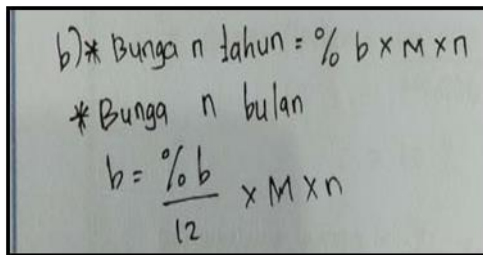 b)* Bunga n tahun = % b x M x n
* Bunga n bulan
b = % b / 12 x M x n